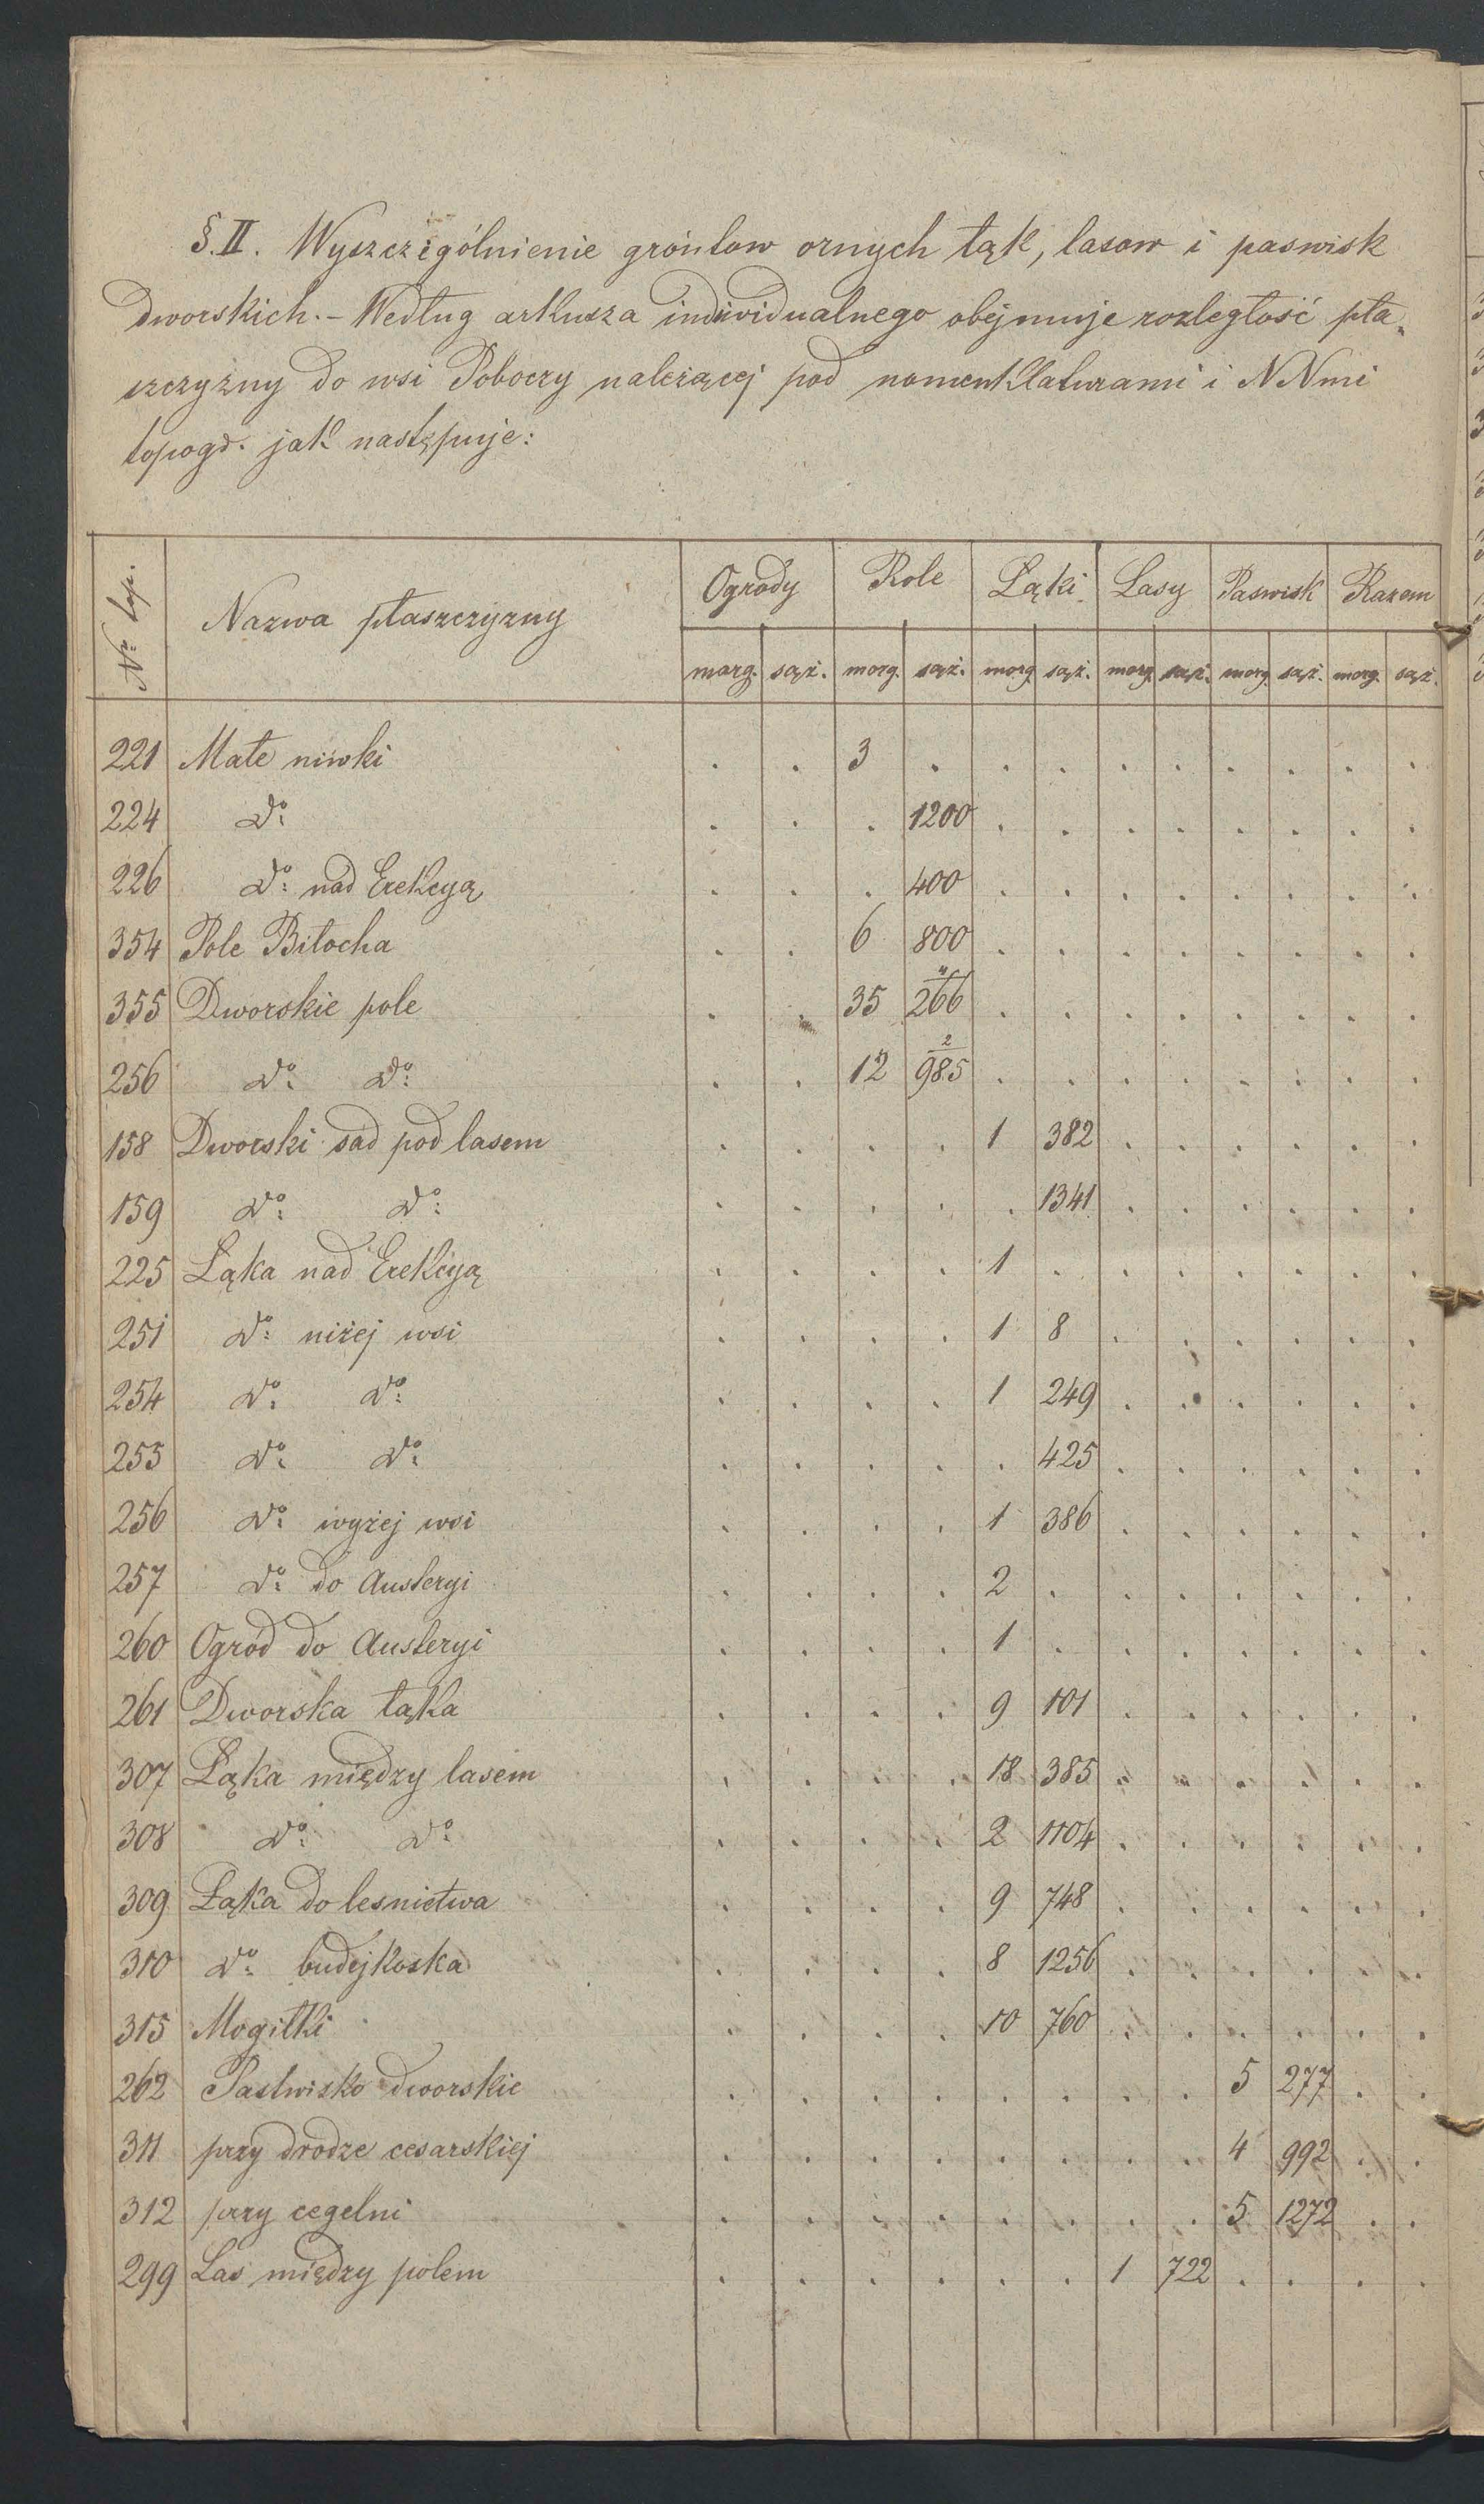 §. II. Wyszczególnienie gróntow ornych łąk, lasow i paswisk
dworskich. – Według arkusza individualnego obejmuje rozległość pła„
szczyzny do wsi Poboczy należącej pod nomenklaturami i NNmi
topogr. jak następuje:
Nr. top. | Nazwa płaszczyzny | Ogrody | Role | Łąki | Lasy | Paswisk | Razem
morg. sąż. morg. sąż. morg. sąż. morg. sąż. morg. sąż. morg. sąż.
221 Małe niwki . . 3 . . . . . . . . .
224 do: . . . 1200 . . . . . . . .
226 do: nad Erekcyą . . . 400 . . . . . . . .
354 Pole Biłocha . . 6 800 . . . . . . . .
355 Dworskie pole . . 35 266 . . . . . . . .
256 do: do: . . 12 2/985 . . . . . . . .
158 Dworski sad pod lasem . . . . 1 382 . . . . . .
159 do: do: . . . . . 1341 . . . . . .
225 Łąka nad Erekcyą . . . . 1 . . . . . . .
251 do: niżej wsi . . . . 1 8 . . . . . .
254 do: do: . . . . 1 249 . . . . . .
253 do: do: . . . . . 425 . . . . . .
256 do: wyżej wsi . . . . 1 386 . . . . . .
257 do: do Austeryi . . . . 2 . . . . . . .
260 Ogród do Austeryi . . . . 1 . . . . . . .
261 Dworska łąka . . . . 9 101 . . . . . .
307 Łąka między lasem . . . . 18 385 . . . . . .
308 do: do: . . . . 2 1104 . . . . . .
309 Łąka do lesnictwa . . . . 9 748 . . . . . .
310 do: budejkoska . . . . 8 1256 . . . . . .
315 Mogiłki . . . . 10 760 . . . . . .
262 Pastwisko dworskie . . . . . . . . 5 277 . .
311 przy drodze cesarskiej . . . . . . . . 4 992 . .
312 przy cegelni . . . . . . . . 5 1272 . .
299 Las między polem . . . . . . 1 722 . . . .